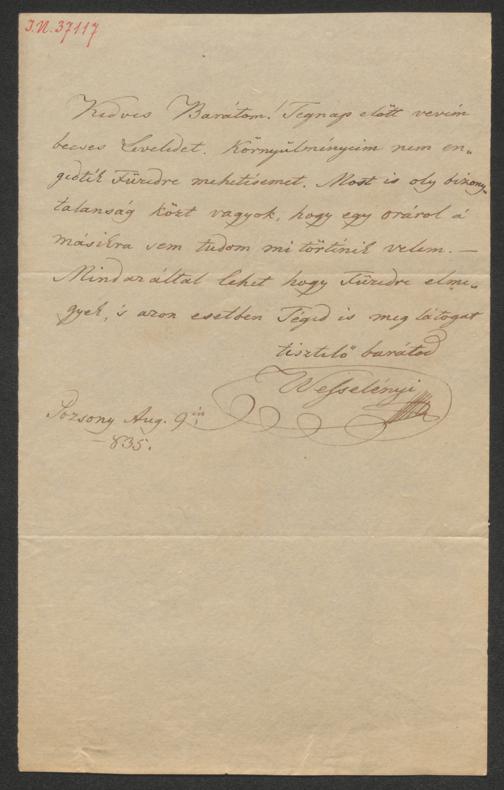 J.N. 37117
Kedves Barátom! Tegnap előtt vevém
becses Leveledet. Környűlményeim nem en„
gedték Füredre mehetésemet. Most is oly bizony„
talanság közt vagyok, hogy egy orárol á
másikra sem tudom mi történik velem. —
Mindazáltal lehet hogy Füredre elme„
gyek, 's azon esetben Téged is meg látogat
tisztelő barátod
Wesselényi
Pozsony Aug. 9én
—835.